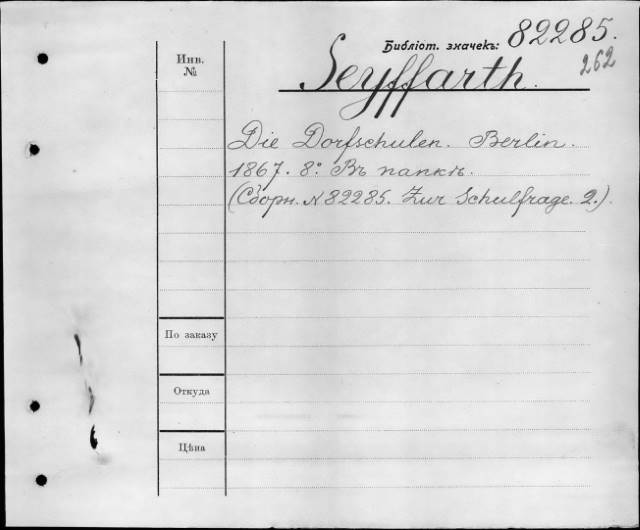 Библіот. значекъ: 82285.
262
Инв.
№
Seyffarth.
Die Dorfschulen. Berlin.
1867. 8º. Въ папкѣ.
(Сборн. № 82285. Zur Schulfrage. 2.).
По заказу
Откуда
Цѣна